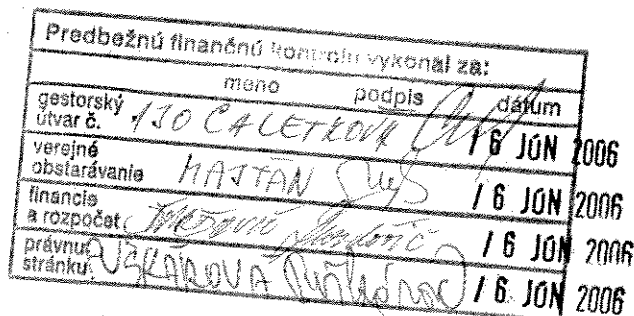 Predbežnú finančnú kontrolu vykonal za:
meno podpis dátum
gestorský útvar č. 130 CALETKOVÁ 16 JÚN 2006
verejné obstarávanie MAJTÁN 16 JÚN 2006
financie a rozpočet 16 JÚN 2006
právnu stránku PUŠKÁROVÁ 16 JÚN 2006